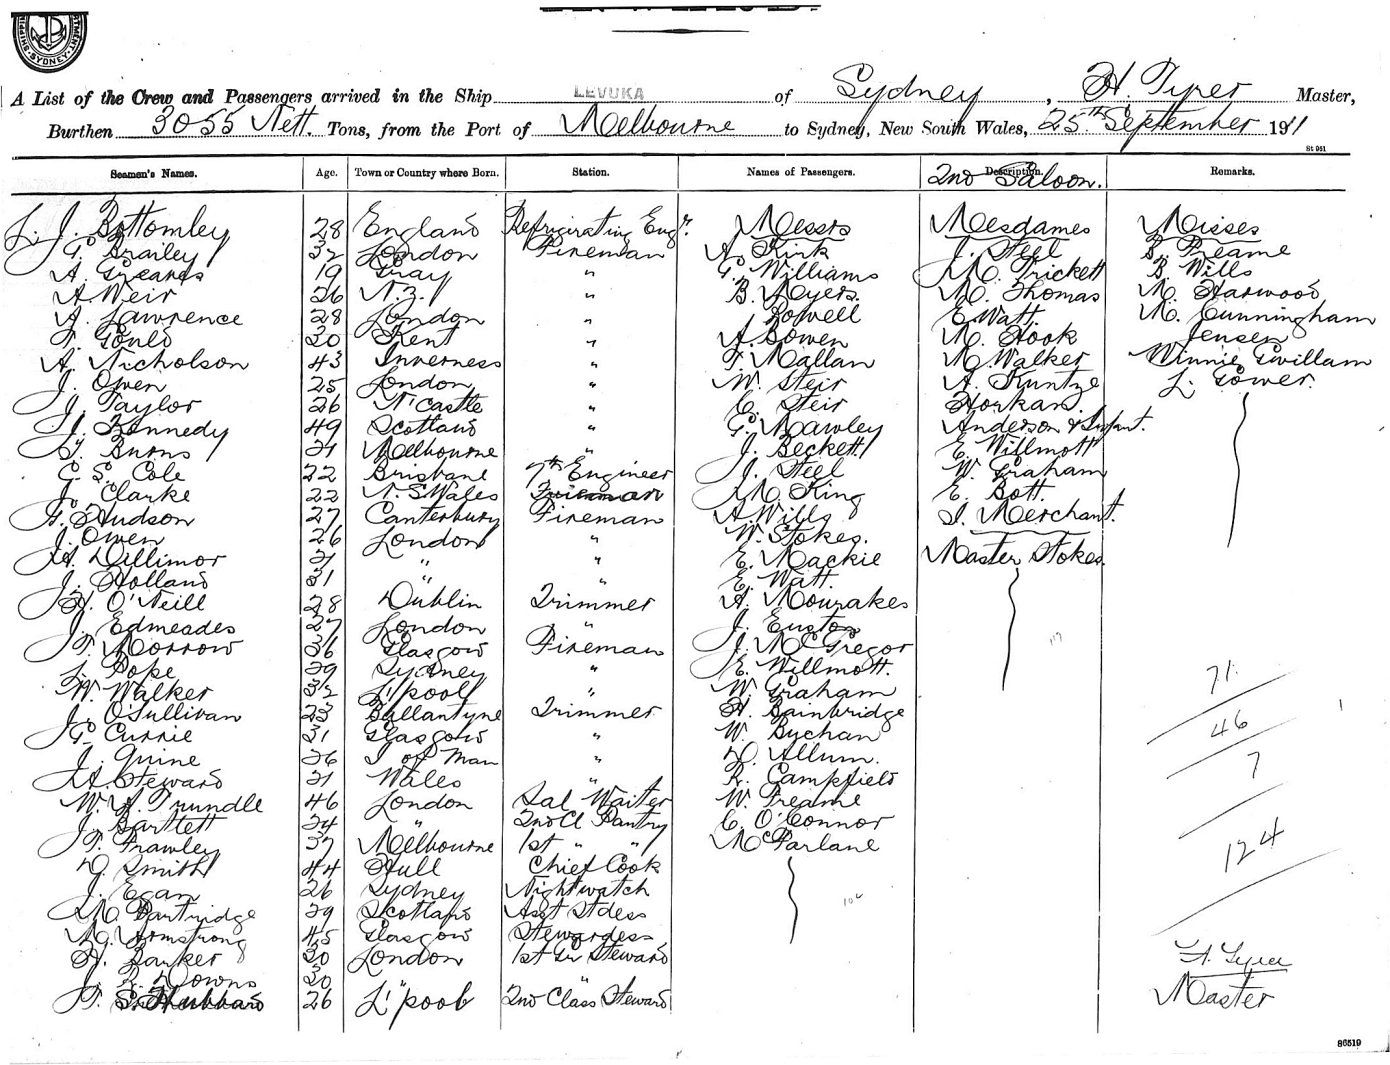 SYDNEY
A List of the Crew and Passengers arrived in the Ship LEVUKA of Sydney, H. Tyrer Master,
Burthen 3055 Nett. Tons, from the Port of Melbourne to Sydney, New South Wales, 25th September 1911
St 951
Seamen's Names. Age. Town or Country where Born. Station. Names of Passengers. Description. 2nd Saloon. Remarks.
L. J. Bottomley 28 England Refrigirating Engr. Messrs Mesdames Misses
G. Brailey 32 London Fireman A. Kirk J. Steel B. Freame
A. Greaves 19 Gray " G. Williams M. Trickett B. Wills
A Weir 26 N.Z. " B. Myers. M. Thomas M. Harwood
A. Lawrence 28 London " Powell E. Watt. M. Cunningham
F. Gould 30 Kent " A. Bowen M. Hook Jensen
A. Nicholson 43 Inverness " F. Mallan M. Walker Winnie Gwillam
J. Owen 25 London " W. Steir A. Kuntze L. Gower.
J. Taylor 26 N'Castle " C. Steir Horkan.
J. Kennedy 49 Scotland " G. Mawley Anderson & Infant.
Burns 21 Melbourne " J. Beckett E. Willmott
C. S. Cole 22 Brisbane 7th Engineer J. Steel W. Graham
J. Clarke 22 N.S. Wales Fireman M. King E. Bott.
G. Hudson 27 Canterbury Fireman A. Wills Merchant.
J. Owen 26 London " W. Stokes.
H. Dillimor 21 " " E. Mackie Master Stokes.
J. Holland 31 " " E. Watt.
H. O'Neill 28 Dublin Trimmer A. Mourakes
J. Edmeades 27 London " J. Euston
F. Morrow 36 Glasgow Fireman J. McGregor
L. Pope 29 Sydney " E. Willmott. 71.
W. Walker 32 L'pool " W. Graham
J. O'Sullivan 23 Ballantyne Trimmer H. Bainbridge 46
G. Currie 31 Glasgow " W. Buchan
J. Quine 26 I of Man " D. Allum. 7
H. Steward 21 Wales " R. Campfield
W. H. Trundle 46 London Sal Waiter W. Freame
J. Bartlett 24 " 2nd Cl Pantry C. O'Connor 124
F. Frawley 37 Melbourne 1st " " McFarlane
D. Smith 44 Hull Chief Cook
J. Egan 26 Sydney Nightwatch
M. Partridge 29 Scotland Asst Stdess
M. Armstrong 45 Glasgow Stewardess
H. Barker 30 London 1st Gr Steward H. Tyrer
J. R. Downs 30 " "
F. S. Hubbard 26 L'pool 2nd Class Steward Master
86519